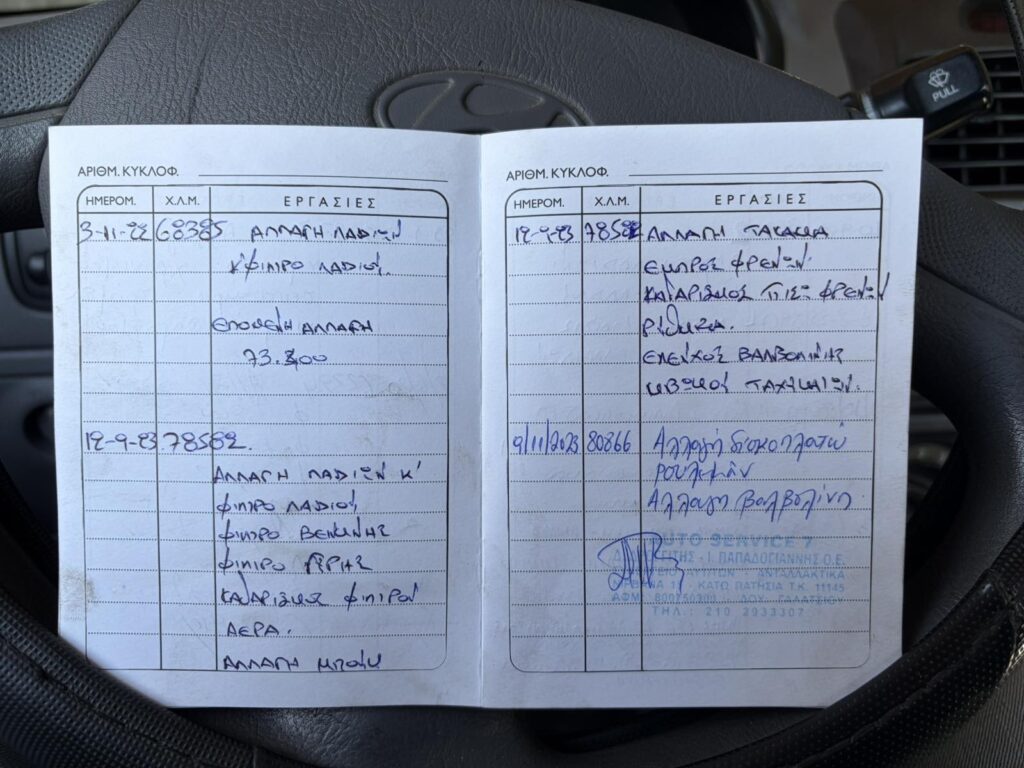 PULL
ΑΡΙΘΜ. ΚΥΚΛΟΦ.
ΗΜΕΡΟΜ. Χ.Λ.Μ. ΕΡΓΑΣΙΕΣ
3-11-22 68385 ΑΛΛΑΓΗ ΛΑΔΙΩΝ
Κ' ΦΙΛΤΡΟ ΛΑΔΙΟΥ.
ΕΠΟΜΕΝΗ ΑΛΛΑΓΗ
73.300
12-9-23 78582.
ΑΛΛΑΓΗ ΛΑΔΙΩΝ Κ'
ΦΙΛΤΡΟ ΛΑΔΙΟΥ,
ΦΙΛΤΡΟ ΒΕΝΖΙΝΗΣ
ΦΙΛΤΡΟ
ΚΑΘΑΡΙΣΜΟΣ ΦΙΛΤΡΟΥ
ΑΕΡΑ.
ΑΛΛΑΓΗ ΜΠΟΥΖΙ
ΑΡΙΘΜ. ΚΥΚΛΟΦ.
ΗΜΕΡΟΜ. Χ.Λ.Μ. ΕΡΓΑΣΙΕΣ
12-9-23 78582 ΑΛΛΑΓΗ ΤΑΚΑΚΙΑ
ΕΜΠΡΟΣ ΦΡΕΝΩΝ.
ΚΑΘΑΡΙΣΜΟΣ ΠΙΣΩ ΦΡΕΝΩΝ
ΡΥΘΜΙΣΗ.
ΕΛΕΓΧΟΣ ΒΑΛΒΟΛΙΝΗΣ
ΚΙΒΩΤΙΟΥ ΤΑΧΥΤΗΤΩΝ.
9/11/2023 80866 Αλλαγή δισκοπλατώ
ρουλεμάν
Αλλαγή βαλβολίνη.
AUTO SERVICE 7
Ι. ΠΑΠΑΔΟΓΙΑΝΝΗΣ Ο.Ε.
ΑΝΤΑΛΛΑΚΤΙΚΑ
ΚΑΤΩ ΠΑΤΗΣΙΑ Τ.Κ. 11145
ΑΦΜ: ΔΟΥ: ΓΑΛΑΤΣΙΟΥ
ΤΗΛ.: 210 2933307